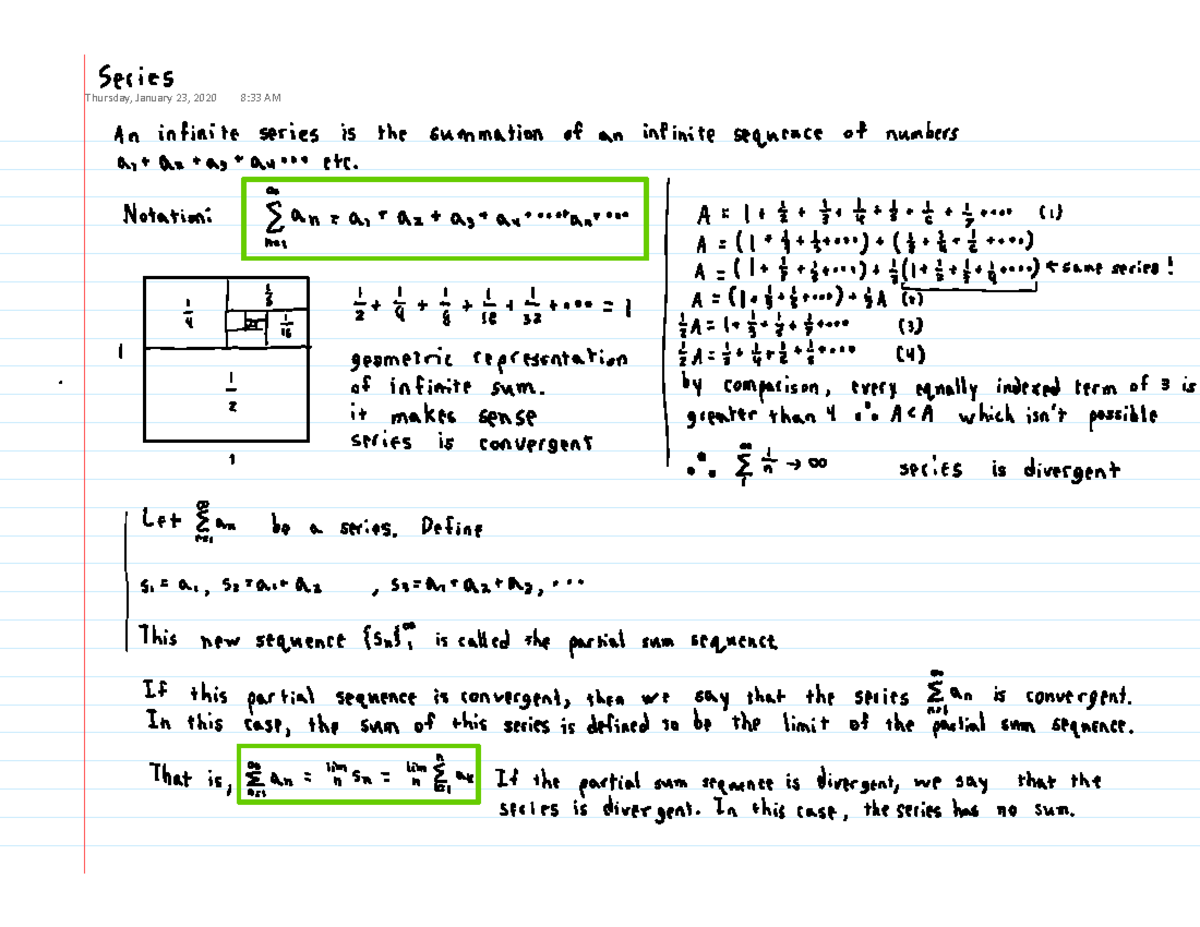 Series
Thursday, January 23, 2020 8:33 AM
An infinite series is the summation of an infinite sequence of numbers
a₁ + a₂ + a₃ + a₄ .... etc.
Notation:
∞
∑ aₙ = a₁ + a₂ + a₃ + a₄ + ..... + aₙ + ....
n=1
1/4
1/8
1/16
1/2
1
1
1/2 + 1/4 + 1/8 + 1/16 + 1/32 + .... = 1
geometric representation
of infinite sum.
it makes sense
series is convergent
A = 1 + 1/2 + 1/3 + 1/4 + 1/5 + 1/6 + 1/7 + .... (1)
A = (1 + 1/3 + 1/5 + ....) + (1/2 + 1/4 + 1/6 + ....)
A = (1 + 1/3 + 1/5 + ....) + 1/2 (1 + 1/2 + 1/3 + 1/4 ....) ← same series!
A = (1 + 1/3 + 1/5 + ....) + 1/2 A (2)
1/2 A = 1 + 1/3 + 1/5 + 1/7 + .... (3)
1/2 A = 1/2 + 1/4 + 1/6 + 1/8 + .... (4)
by comparison, every equally indexed term of 3 is
greater than 4 ∴ A < A which isn't possible
∴ ∞∑1 1/n → ∞ series is divergent
Let ∞∑n=1 aₙ be a series. Define
s₁ = a₁, s₂ = a₁ + a₂ , s₃ = a₁ + a₂ + a₃, ...
This new sequence {sₙ}₁^∞ is called the partial sum sequence
If this partial sequence is convergent, then we say that the series ∞∑n=1 aₙ is convergent.
In this case, the sum of this series is defined to be the limit of the partial sum sequence.
That is, ∞∑n=1 aₙ = lim n sₙ = lim n n∑k=1 aₖ If the partial sum sequence is divergent, we say that the
series is divergent. In this case, the series has no sum.